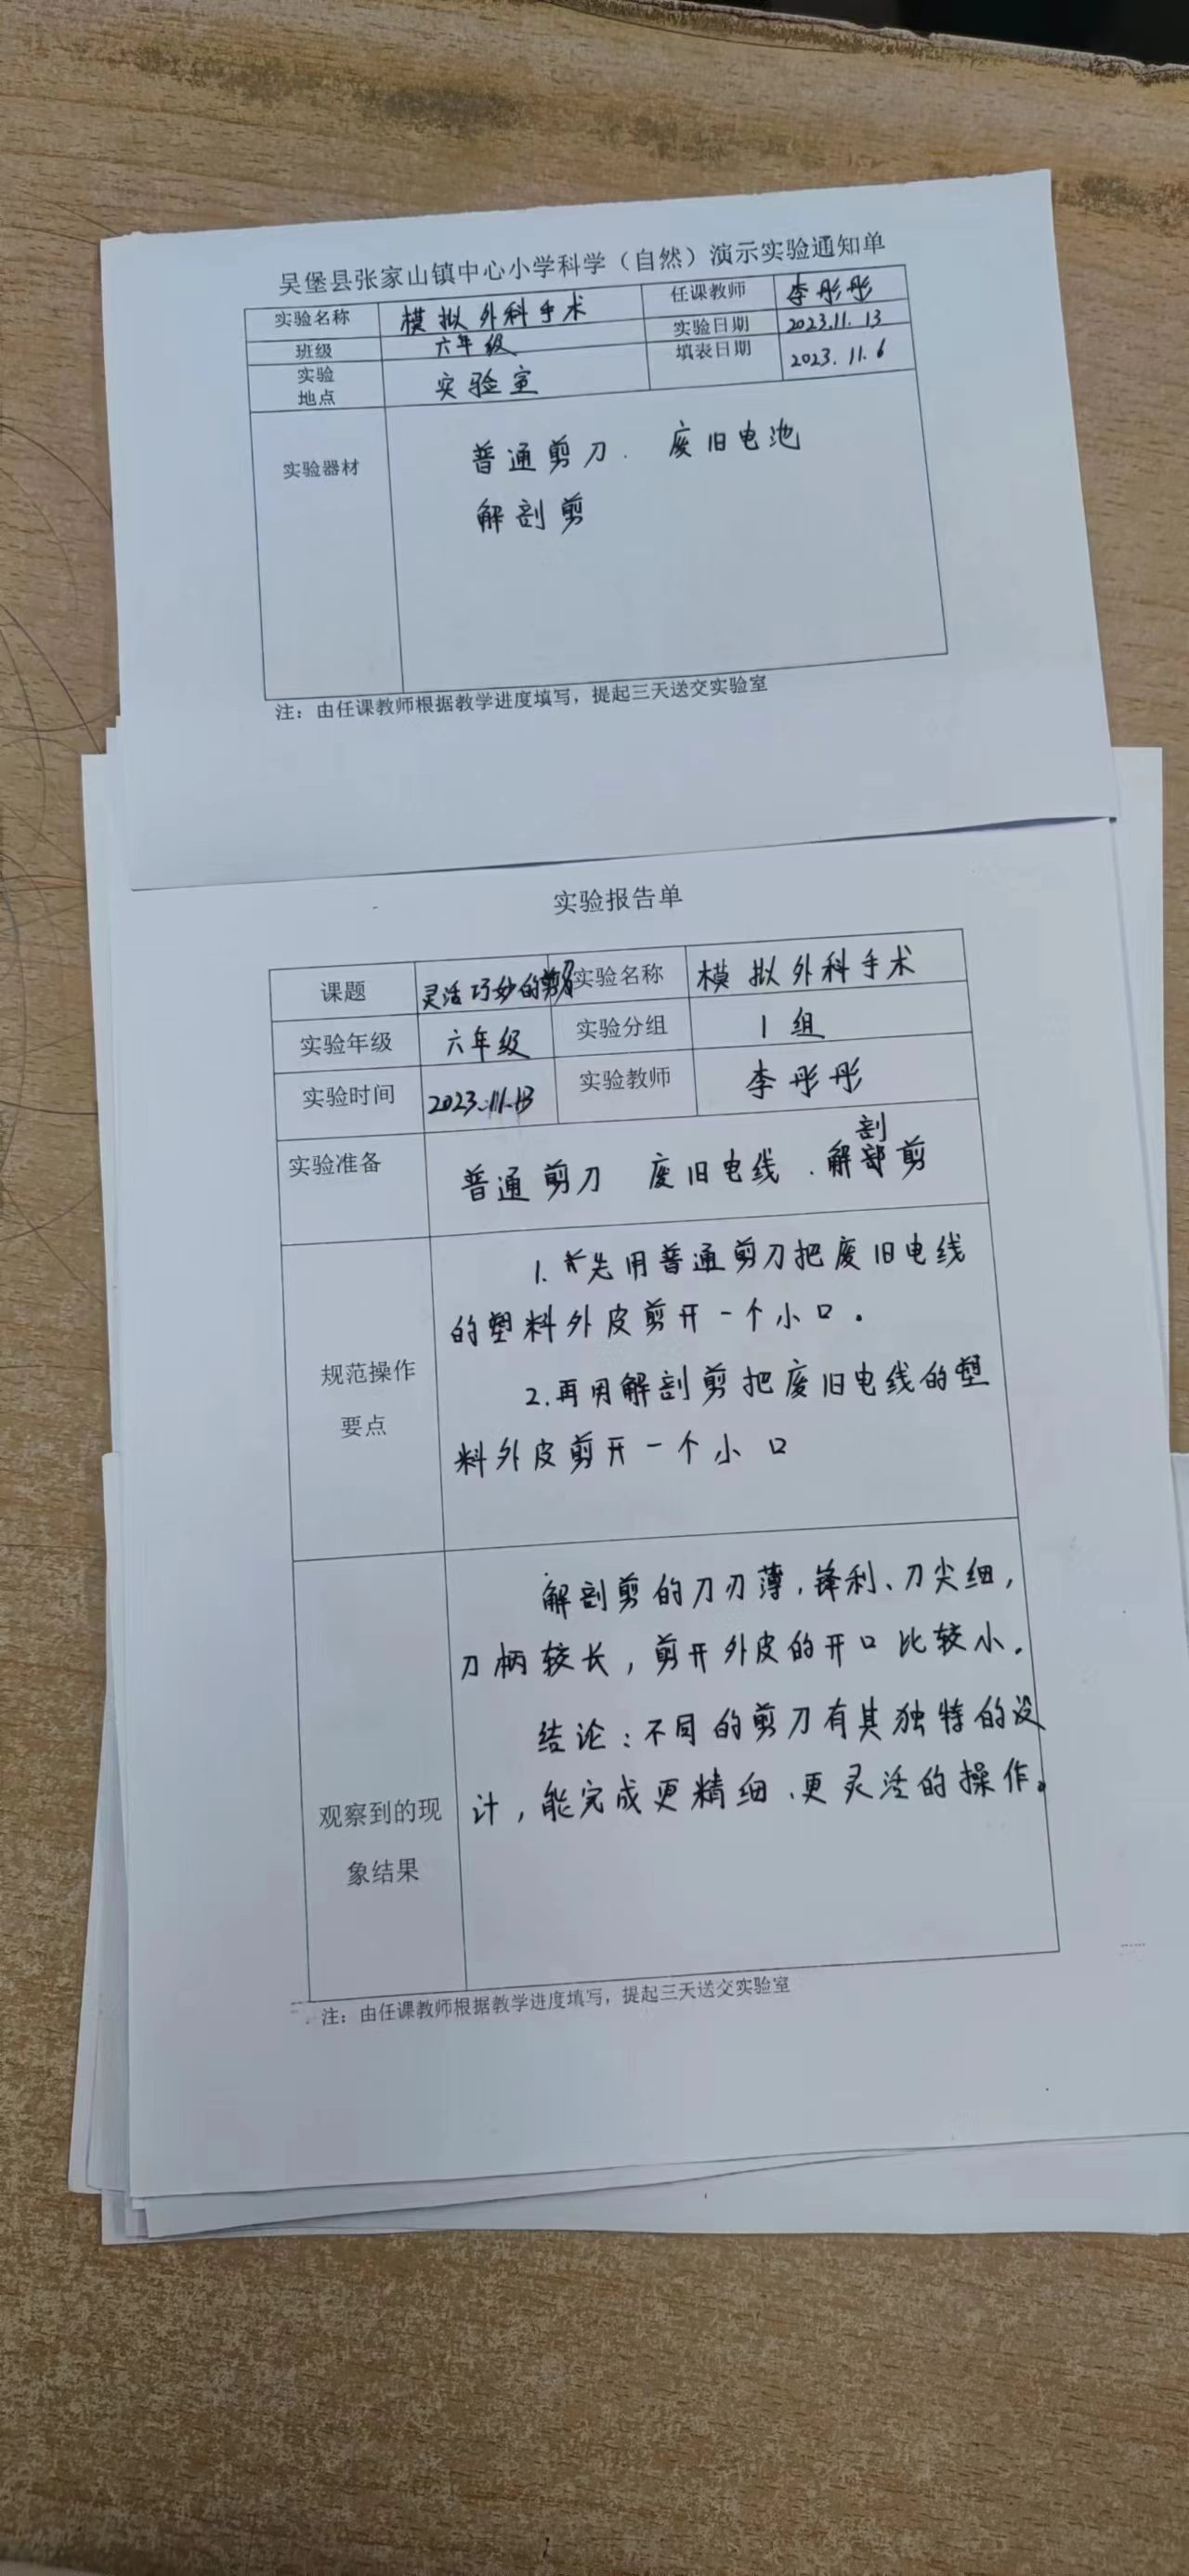 吴堡县张家山镇中心小学科学（自然）演示实验通知单
实验名称 模拟外科手术 任课教师 李彤彤
班级 六年级 实验日期 2023.11.13
实验地点 实验室 填表日期 2023.11.6
实验器材 普通剪刀. 废旧电池
解剖剪
注：由任课教师根据教学进度填写，提起三天送交实验室
实验报告单
课题 灵活巧妙的剪刀 实验名称 模拟外科手术
实验年级 六年级 实验分组 1组
实验时间 2023.11.13 实验教师 李彤彤
实验准备 普通剪刀 废旧电线.解剖剪
1.先用普通剪刀把废旧电线
的塑料外皮剪开一个小口。
规范操作
要点
2.再用解剖剪把废旧电线的塑
料外皮剪开一个小口
解剖剪的刀刃薄,锋利、刀尖细，
刀柄较长，剪开外皮的开口比较小.
结论：不同的剪刀有其独特的设
计，能完成更精细、更灵活的操作。
观察到的现
象结果
注：由任课教师根据教学进度填写，提起三天送交实验室